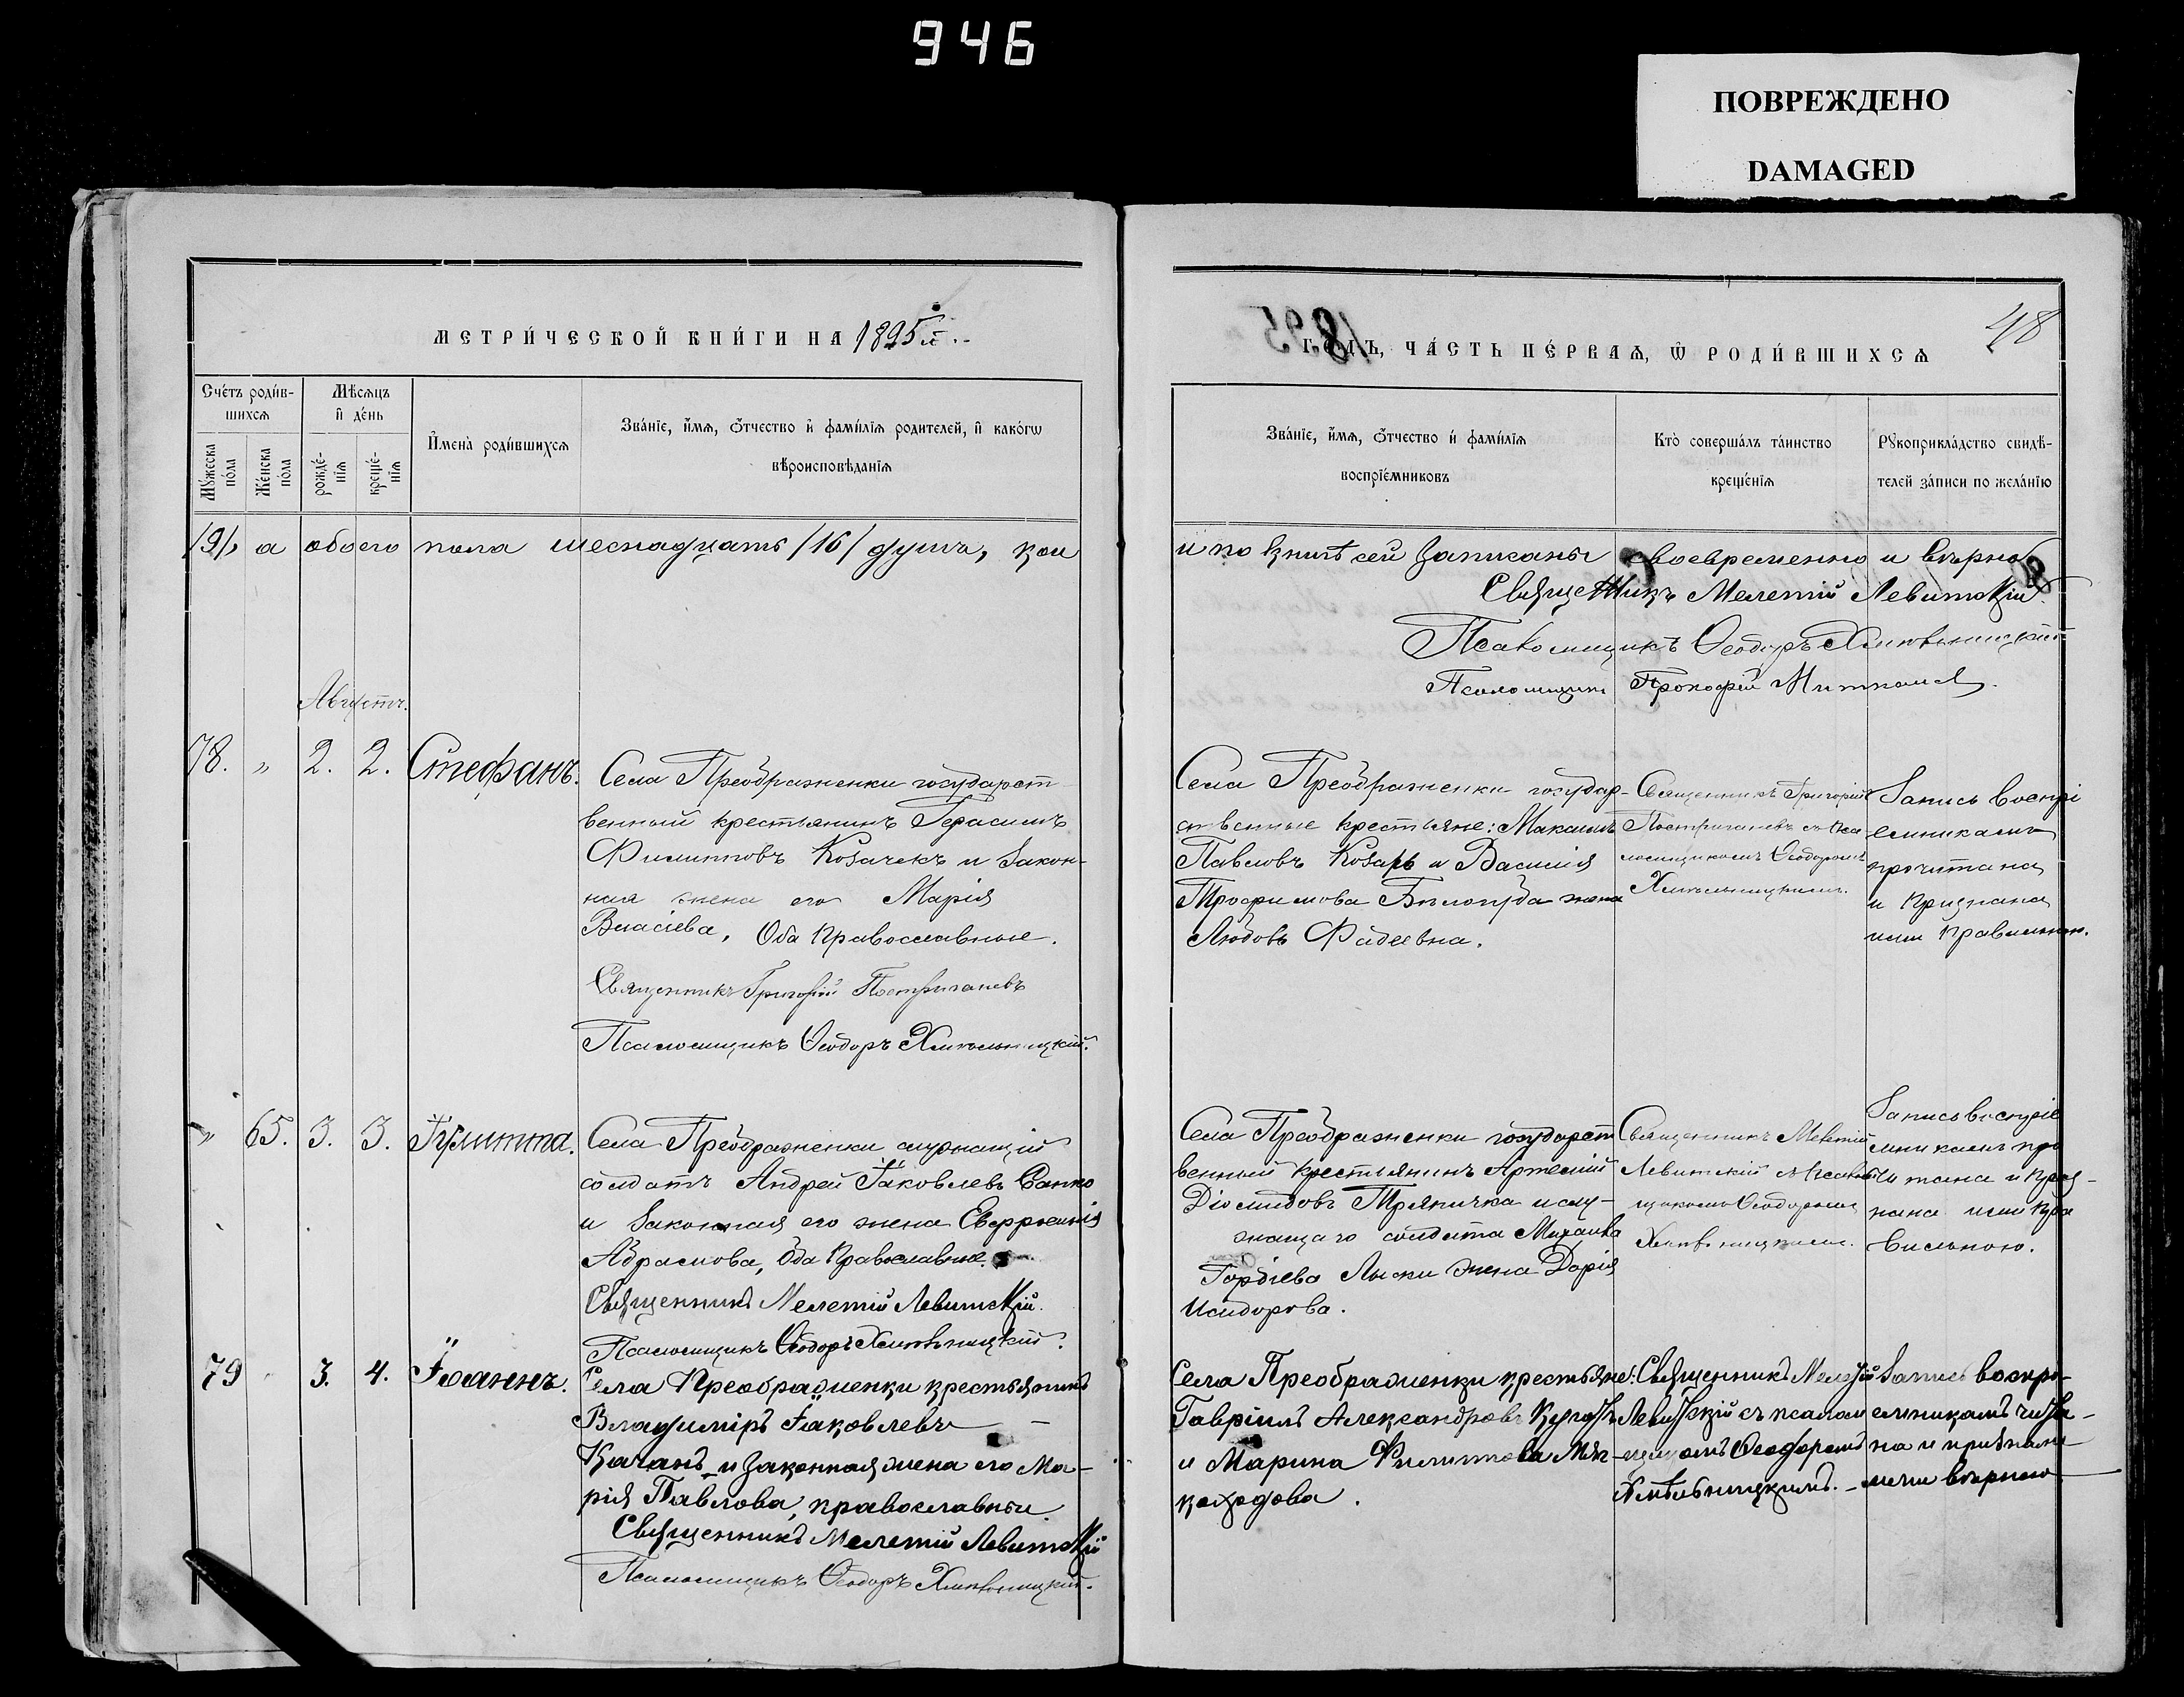 946
ПОВРЕЖДЕНО
DAMAGED
МЕТРИ́ЧЕСКОЙ КНИ́ГИ НА 1895 й.
Сче́тъ роди́в-
шихсѧ
Мѣ́сѧцъ
и҆ де́нь
Мꙋ́жеска
по́ла
Же́нска
по́ла
рожде́-
нїѧ
креще́-
нїѧ
И҆мена̀ роди́вшихсѧ
Зва́нїе, и҆́мѧ, ѻ҆́тчество и҆ фами́лїѧ родителей, и҆ како́гѡ
вѣроисповѣ́данїѧ
/9/, а обоего пола шеснадцать /16/ душъ, кои
Августъ.
78. „ 2. 2. Стефанъ.
Села Преображенки государст
венный крестьянинъ Герасимъ
Филипповъ Козачекъ и закон-
ная жена его Марія
Власіева, Оба православные.
Священникъ Григорій
Псаломщикъ Ѳеодоръ Хмѣльницкій.
„ 65. 3. 3. Іулитта.
Села Преображенки служащій
солдатъ Андрей Іаковлевъ
и законная его жена Евфросинія
Абрамова, Оба православные.
Священникъ Мелетій Левитскій.
Псаломщикъ Ѳеодоръ Хмѣльницкій.
79 3. 4. Іоаннъ.
Села Преображенки крестьянинъ
Владиміръ Іаковлевъ —
Качанъ и законная жена его Ма-
рія Павлова, православны.
Священникъ Мелетій Левитскій
Псаломщикъ Ѳеодоръ Хмѣльницкій.
48
1895
го́дъ, ЧА́СТЬ ПЕ́РВАѦ, Ѡ҆ РОДИ́ВШИХСѦ
Зва́нїе, и҆́мѧ, ѻ҆́тчество и҆ фами́лїѧ
воспрїе́мниковъ
Кто̀ соверша́лъ та́инство
креще́нїѧ
Рꙋкоприкла́дство свидѣ́-
телей за́писи по жела́нїю
и по книгѣ сей записаны своевременно и вѣрно
Священникъ Мелетій Левитскій.
Псаломщикъ Ѳеодоръ Хмѣльницкій
Псаломщикъ Прокофій
Села Преображенки государ-
ственные крестьяне: Максимъ
Павловъ Козарь и Василія
Трофимова Бѣлогуба жена
Любовь Фадеевна.
Священникъ Григорій
съ пса
ломщикомъ Ѳеодоромъ
Хмѣльницкимъ.
Запись воспрі
емникамъ
прочитана
и признана
ими правильною.
Села Преображенки государст
венный крестьянинъ Артемій
Діомидовъ Тряничка и слу-
жащаго солдата Михаила
Гордіева жена Дарія
Исидорова.
Священникъ Мелетій
Левитскій съ псалом
щикомъ Ѳеодоромъ
Хмѣльницкимъ.
Запись воспріе
мникамъ про
читана и приз-
нана ими пра
вильною.
Села Преображенки крестьяне:
Гавріилъ Александровъ
и Марина Филиппова
Священникъ Мелетій
Левитскій съ псалом
щикомъ Ѳеодоромъ
Хмѣльницкимъ.
Запись воспрі-
емникамъ чита-
на и признана
ими вѣрною